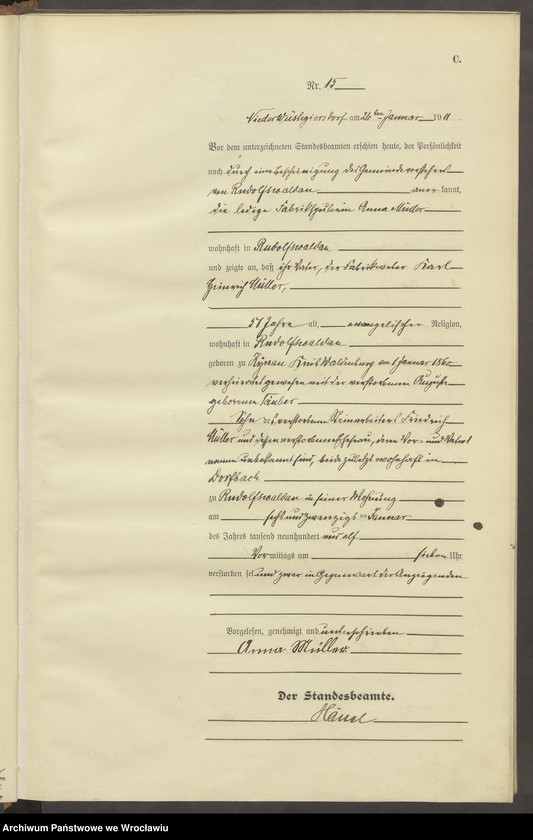 C.
Nr. 15
Nieder Wüstegiersdorf am 26ten Januar 1911.
Vor dem unterzeichneten Standesbeamten erschien heute, der Persönlichkeit
nach durch eine Bescheinigung des Gemeindevorstehers
von Rudolfswaldau anerkannt,
die ledige Fabrikspulerin Anna Müller
wohnhaft in Rudolfswaldau
und zeigte an, daß ihr Vater, der Fabrikweber Karl
Heinrich Müller,
51 Jahre alt, evangelischer Religion,
wohnhaft in Rudolfswaldau
geboren zu Kynau Kreis Waldenburg am 1 Januar 1860
verheiratet gewesen mit der verstorbenen Auguste
geborenen Täuber
Sohn des verstorbenen Friedrich
Müller und dessen verstorbenen Ehefrau, deren Vor- und Vaters
namen unbekannt sind, beide zuletzt wohnhaft in
Dorfbach
zu Rudolfswaldau in seiner Wohnung
am sechsundzwanzigsten Januar
des Jahres tausend neunhundert und elf
Vormittags um sieben Uhr
verstorben sei und zwar in Gegenwart der Anzeigenden
Vorgelesen, genehmigt und unterschrieben
Anna Müller
Der Standesbeamte.
Hänel
Archiwum Państwowe we Wrocławiu